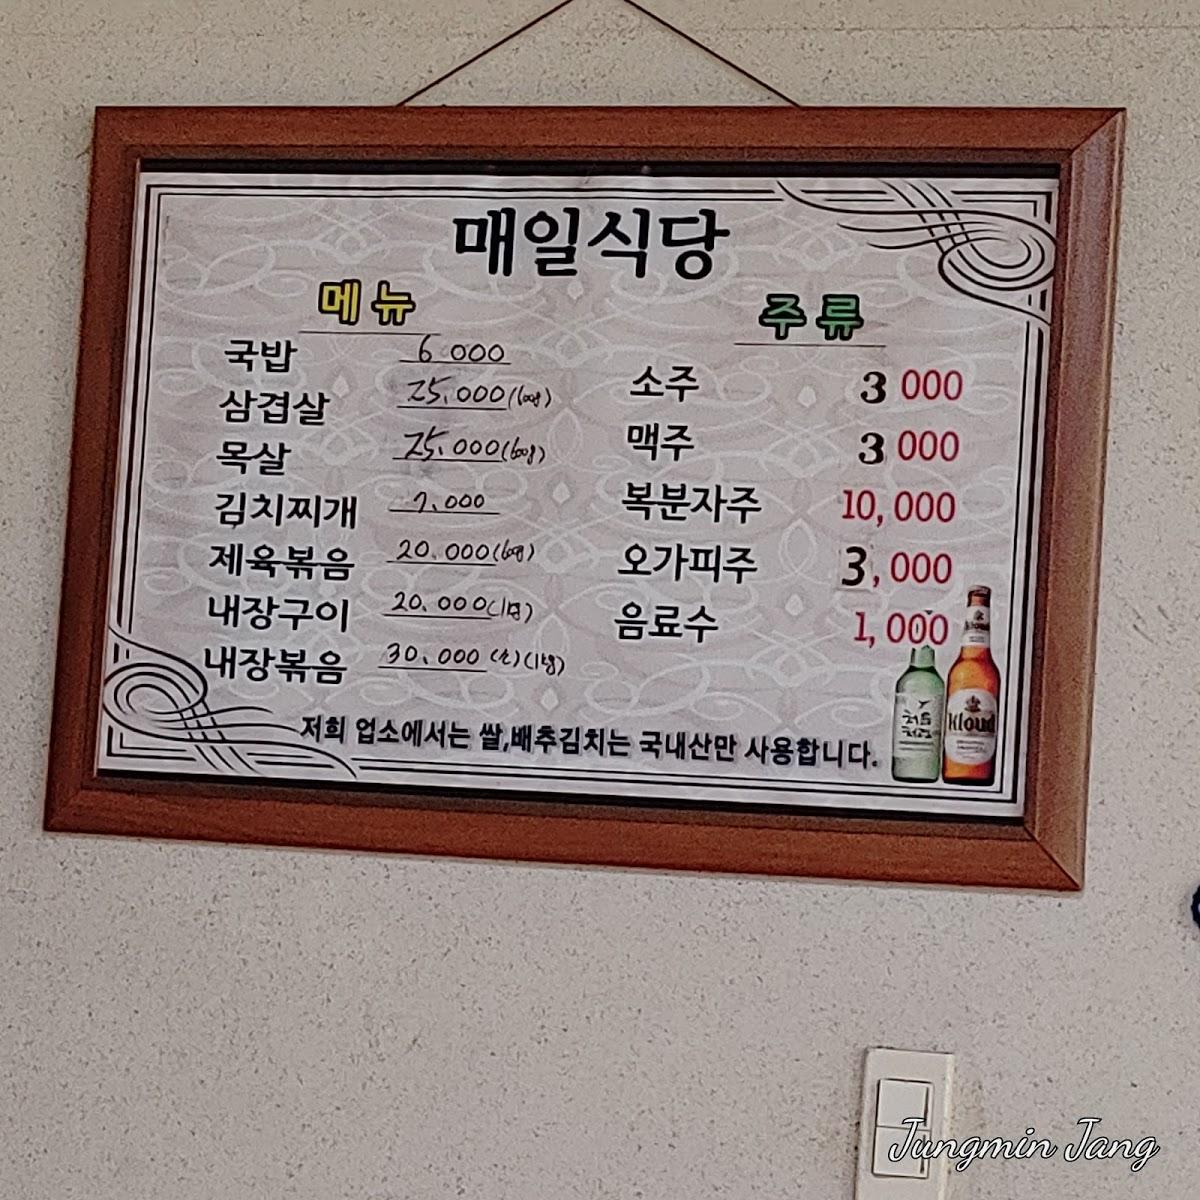 매일식당
메뉴
국밥 6 000
삼겹살 25.000(600g)
목살 25.000(600g)
김치찌개 7.000
제육볶음 20.000(600g)
내장구이 20.000
내장볶음 30.000
주류
소주 3 000
맥주 3 000
복분자주 10,000
오가피주 3,000
음료수 1,000
처음처럼
Kloud
저희 업소에서는 쌀,배추김치는 국내산만 사용합니다.
Jungmin Jang